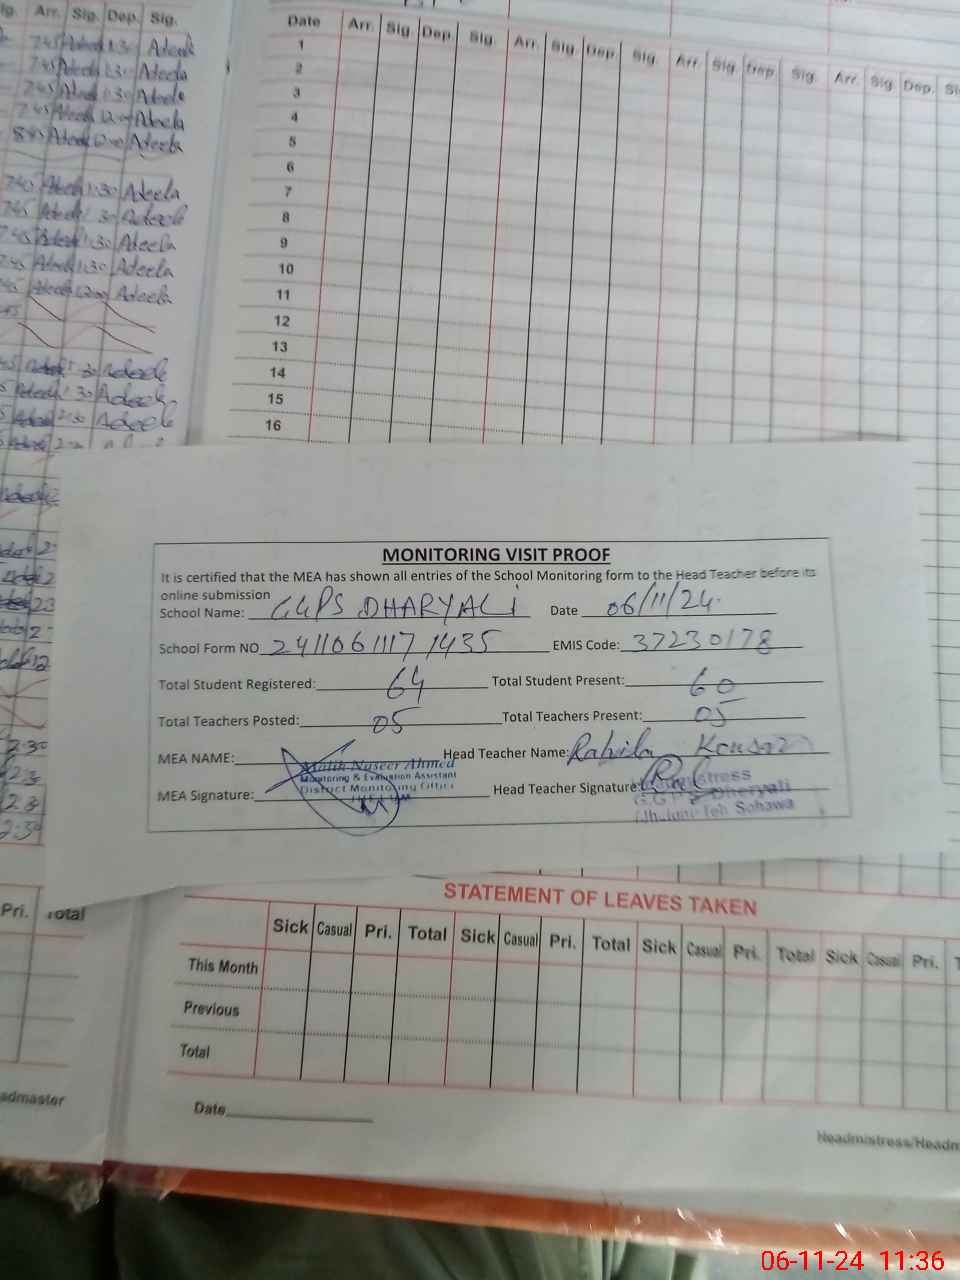 Arr. Sig. Dep. Sig.
7:45 1:30 Adeela
7:45 Adeela 1:30 Adeela
7:45 Adeela 1:30 Adeela
7:45 Adeela 12:00 Adeela
8:45 Adeela 12:00 Adeela
7:45 Adeela 1:30 Adeela
7:45 Adeela 1:30 Adeela
7:45 Adeela 1:30 Adeela
7:45 Adeela 1:30 Adeela
Adeela 12:00 Adeela
Pri. Total
admaster
Date Arr. Sig. Dep. Sig. Arr. Sig. Dep. Sig. Arr. Sig. Dep. Sig. Arr. Sig. Dep.
1
2
3
4
5
6
7
8
9
10
11
12
13
14
15
16
MONITORING VISIT PROOF
It is certified that the MEA has shown all entries of the School Monitoring form to the Head Teacher before its
online submission
School Name: GGPS DHARYALI Date 06/11/24
School Form NO 2411061117 1435 EMIS Code: 37230178
Total Student Registered: 64 Total Student Present: 60
Total Teachers Posted: 05 Total Teachers Present: 05
MEA NAME: Malik Naseer Ahmed Head Teacher Name: Rahila Kousar
Monitoring & Evaluation Assistant
District Monitoring Office
MEA Signature: Head Teacher Signature:
Headmistress
G.G.P.S Dheryali
Teh Sohawa
STATEMENT OF LEAVES TAKEN
Sick Casual Pri. Total Sick Casual Pri. Total Sick Casual Pri. Total Sick Casual Pri.
This Month
Previous
Total
Date
Headmistress/Headm
06-11-24 11:36